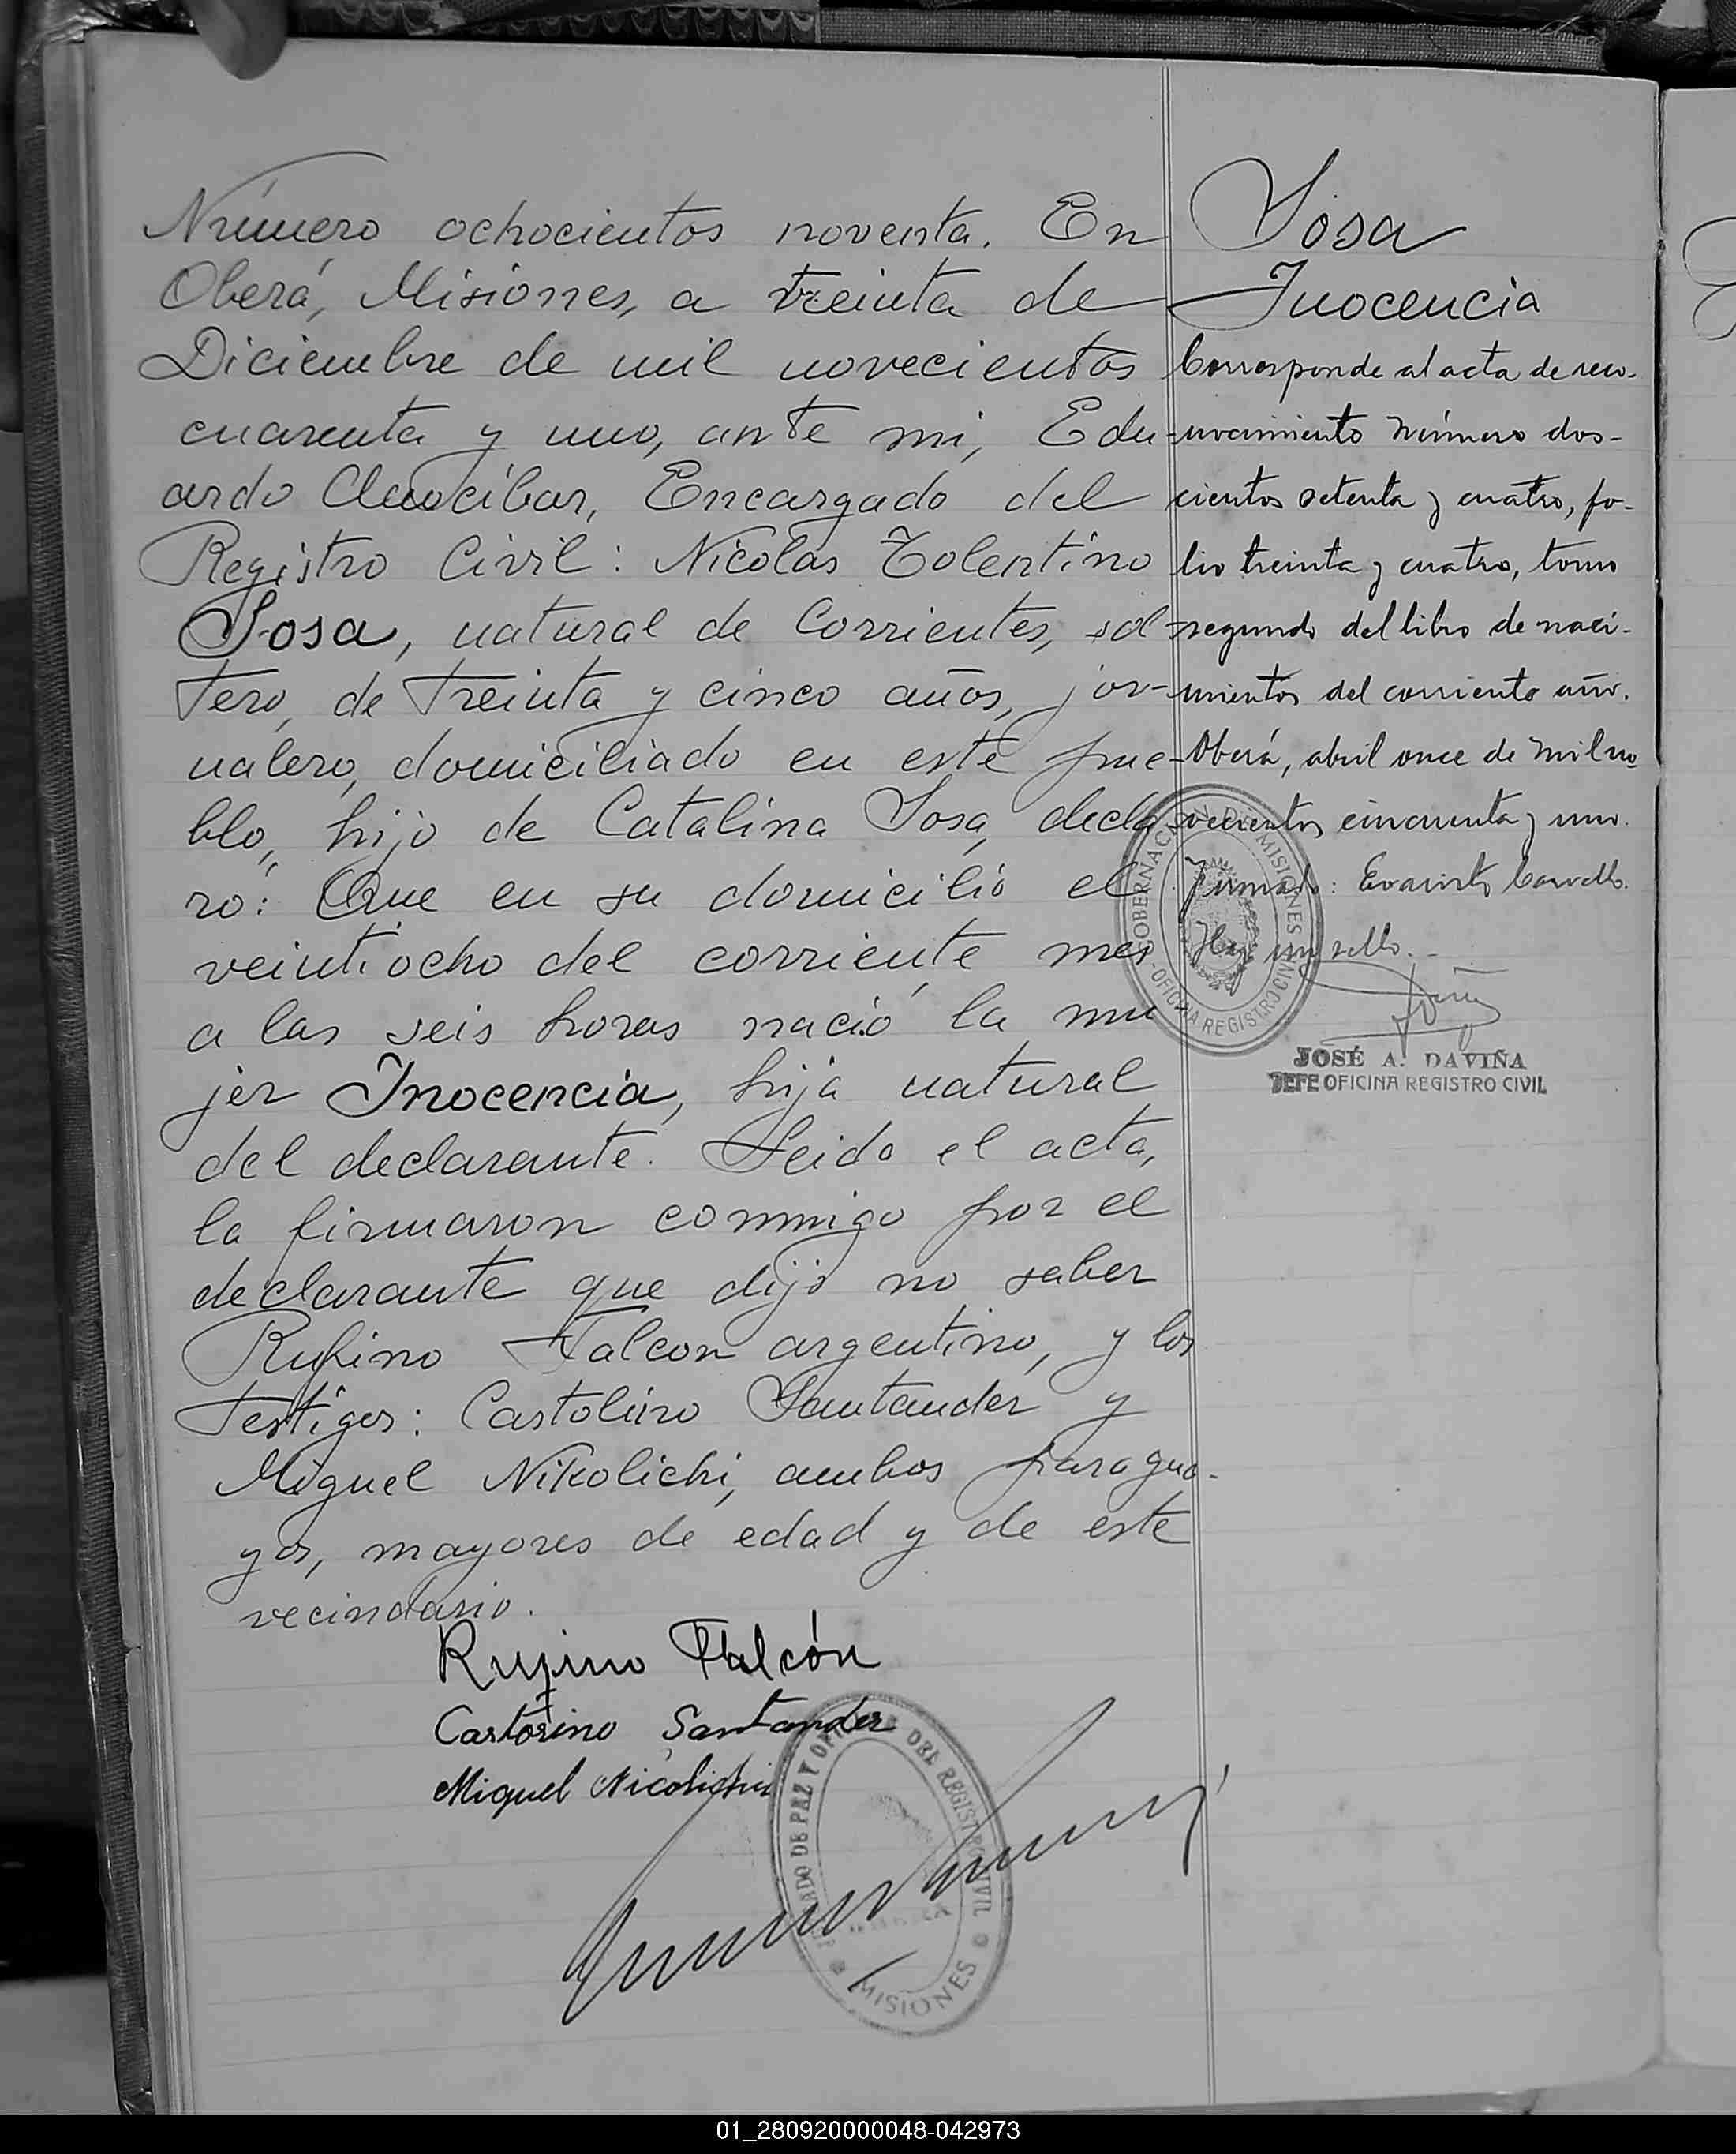 Número ochocientos noventa. En
Oberá, Misiones, a treinta de
Diciembre de mil novecientos
cuarenta y uno, ante mi, Edu-
ardo Amocibar, Encargado del
Registro Civil: Nicolás Tolentino
Sosa, natural de Corrientes, sol-
tero, de treinta y cinco años, jor-
nalero, domiciliado en este pue-
blo, hijo de Catalina Sosa, decla
ró: Que en su domicilio el
veintiocho del corriente mes
a las seis horas nació la mu
jer Inocencia, hija natural
del declarante. Leido el acta,
la firmaron conmigo por el
declarante que dijo no saber
Rufino Falcon argentino, y los
testigos: Castolino Santander y
Miguel Nikolichi, ambos paragua-
yos, mayores de edad y de este
vecindario.
Rufino Falcón
Castorino Santander
Miguel Nicolichi
DE PAZ Y DEL REGISTRO CIVIL
MISIONES
Sosa
Inocencia
Corresponde al acta de reco-
nocimiento número dos-
cientos setenta y cuatro, fo-
lio treinta y cuatro, tomo
segundo del libro de naci-
mientos del corriente año.
Oberá, abril once de mil no
vecientos cincuenta y uno.
Firmado: Evaristo Carvallo.
Hay un sello.-
GOBERNACION DE MISIONES
OFICINA REGISTRO CIVIL
JOSÉ A. DAVIÑA
JEFE OFICINA REGISTRO CIVIL
01_280920000048-042973